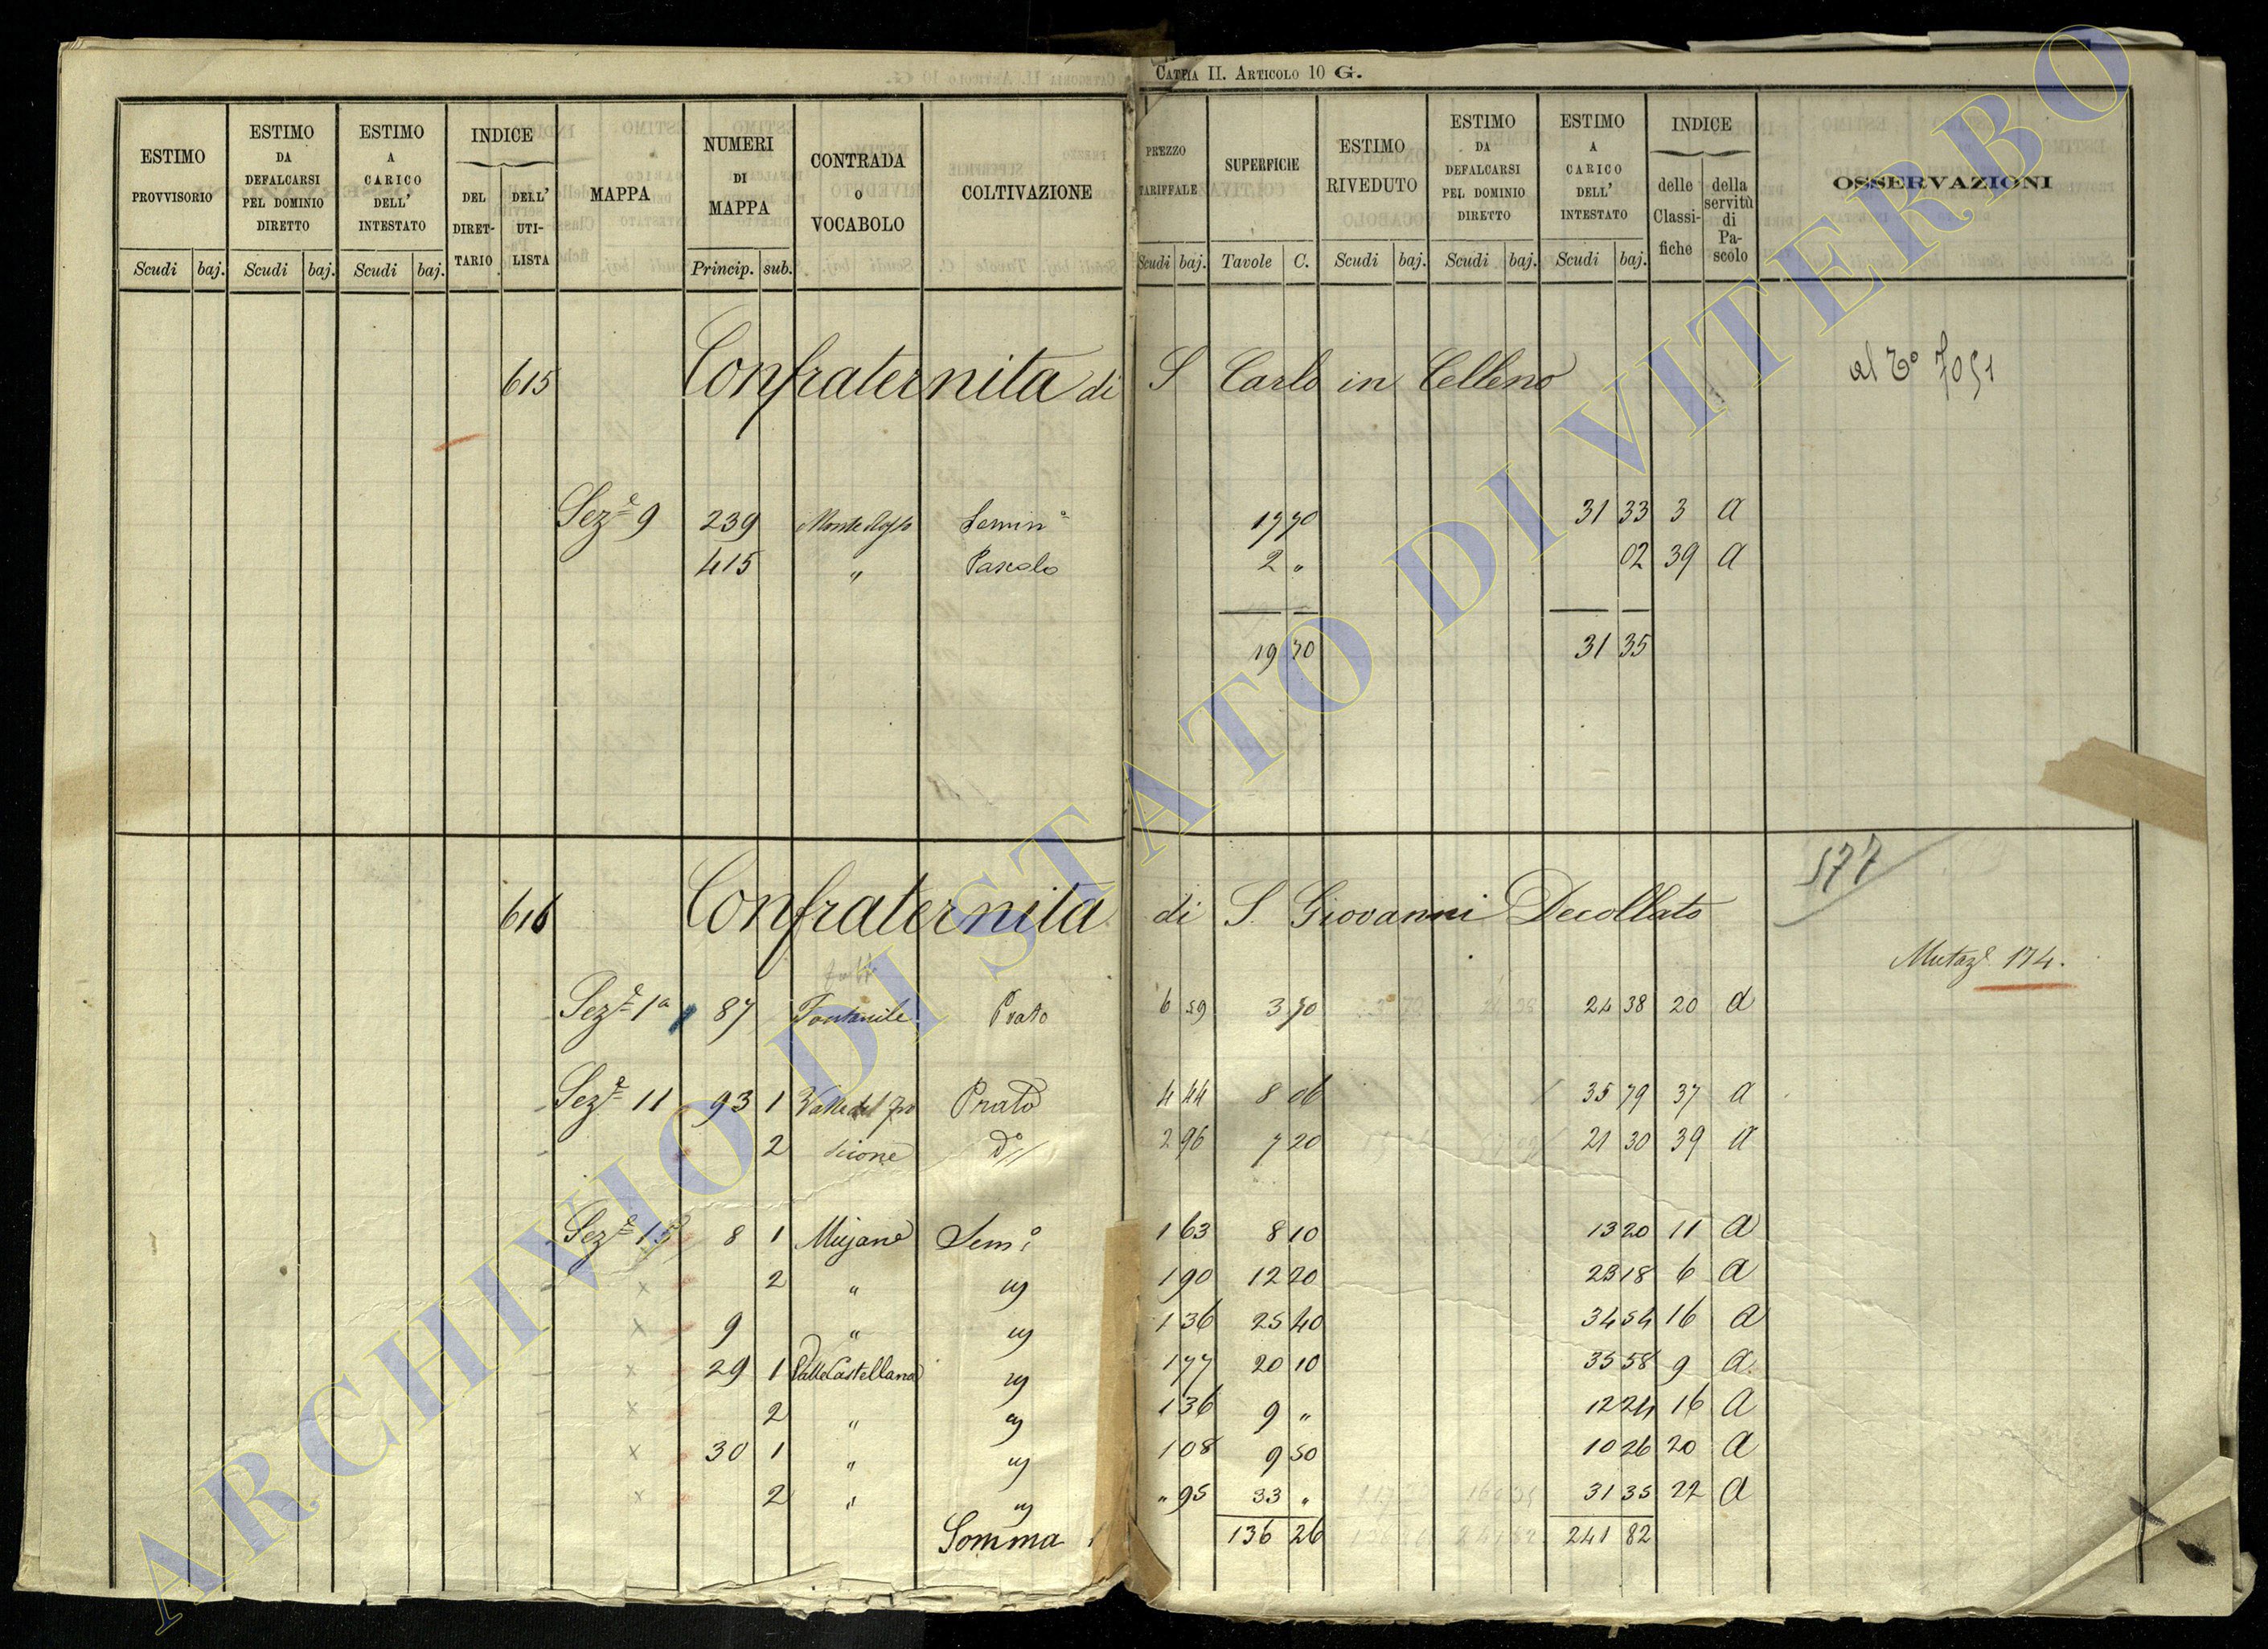 CATTIA II. ARTICOLO 10 G.
ESTIMO PROVVISORIO Scudi baj. ESTIMO DA DEFALCARSI PEL DOMINIO DIRETTO Scudi baj. ESTIMO A CARICO DELL' INTESTATO Scudi baj. INDICE DEL DIRET- TARIO DELL' UTI- LISTA MAPPA NUMERI DI MAPPA Princip. sub. CONTRADA O VOCABOLO COLTIVAZIONE PREZZO TARIFFALE Scudi baj. SUPERFICIE Tavole C. ESTIMO RIVEDUTO Scudi baj. ESTIMO DA DEFALCARSI PEL DOMINIO DIRETTO Scudi baj. ESTIMO A CARICO DELL' INTESTATO Scudi baj. INDICE delle Classi- fiche della servitù di Pa- scolo OSSERVAZIONI
615 Confraternita di S Carlo in Celleno al
Seze 9 239 Semino 17 70 31 33 3 a
415 " Pascolo 2 " 02 39 a
19 70 31 35
577
616 Confraternita di S. Giovanni Decollato
Mutaze 174.
Seze 1a 87 Fontanile Prato 6 59 3 70 24 38 20 d
Seze 11 93 1 Prato 4 44 8 06 35 79 37 a
2 Do 2 96 7 20 21 30 39 a
Seze 15 8 1 Mujane Semo 1 63 8 10 13 20 11 a
2 " " 1 90 12 20 23 18 6 a
9 " " 1 36 25 40 34 54 16 a
29 1 Valle Castellana " 1 77 20 10 35 58 9 a
2 " " 1 36 9 " 12 24 16 a
30 1 " " 1 08 9 50 10 26 20 a
2 " " " 95 33 " 31 35 22 a
Somma 136 26 241 82
ARCHIVIO DI STATO DI VITERBO